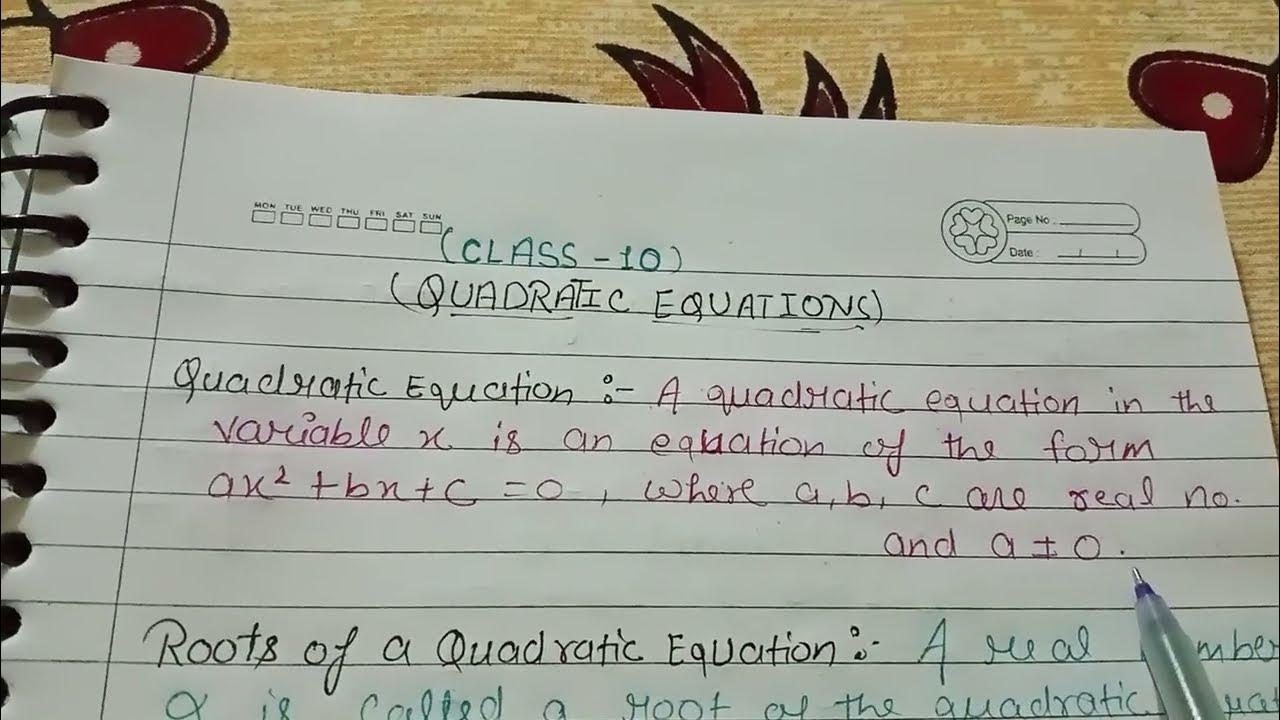 MON TUE WED THU FRI SAT SUN
Page No.
Date:
(CLASS - 10)
(QUADRATIC EQUATIONS)
Quadratic Equation :- A quadratic equation in the
variable x is an equation of the form
ax² + bx + c = 0, where a, b, c are real no.
and a ≠ 0.
Roots of a Quadratic Equation :- A real
α is called a root of the quadratic